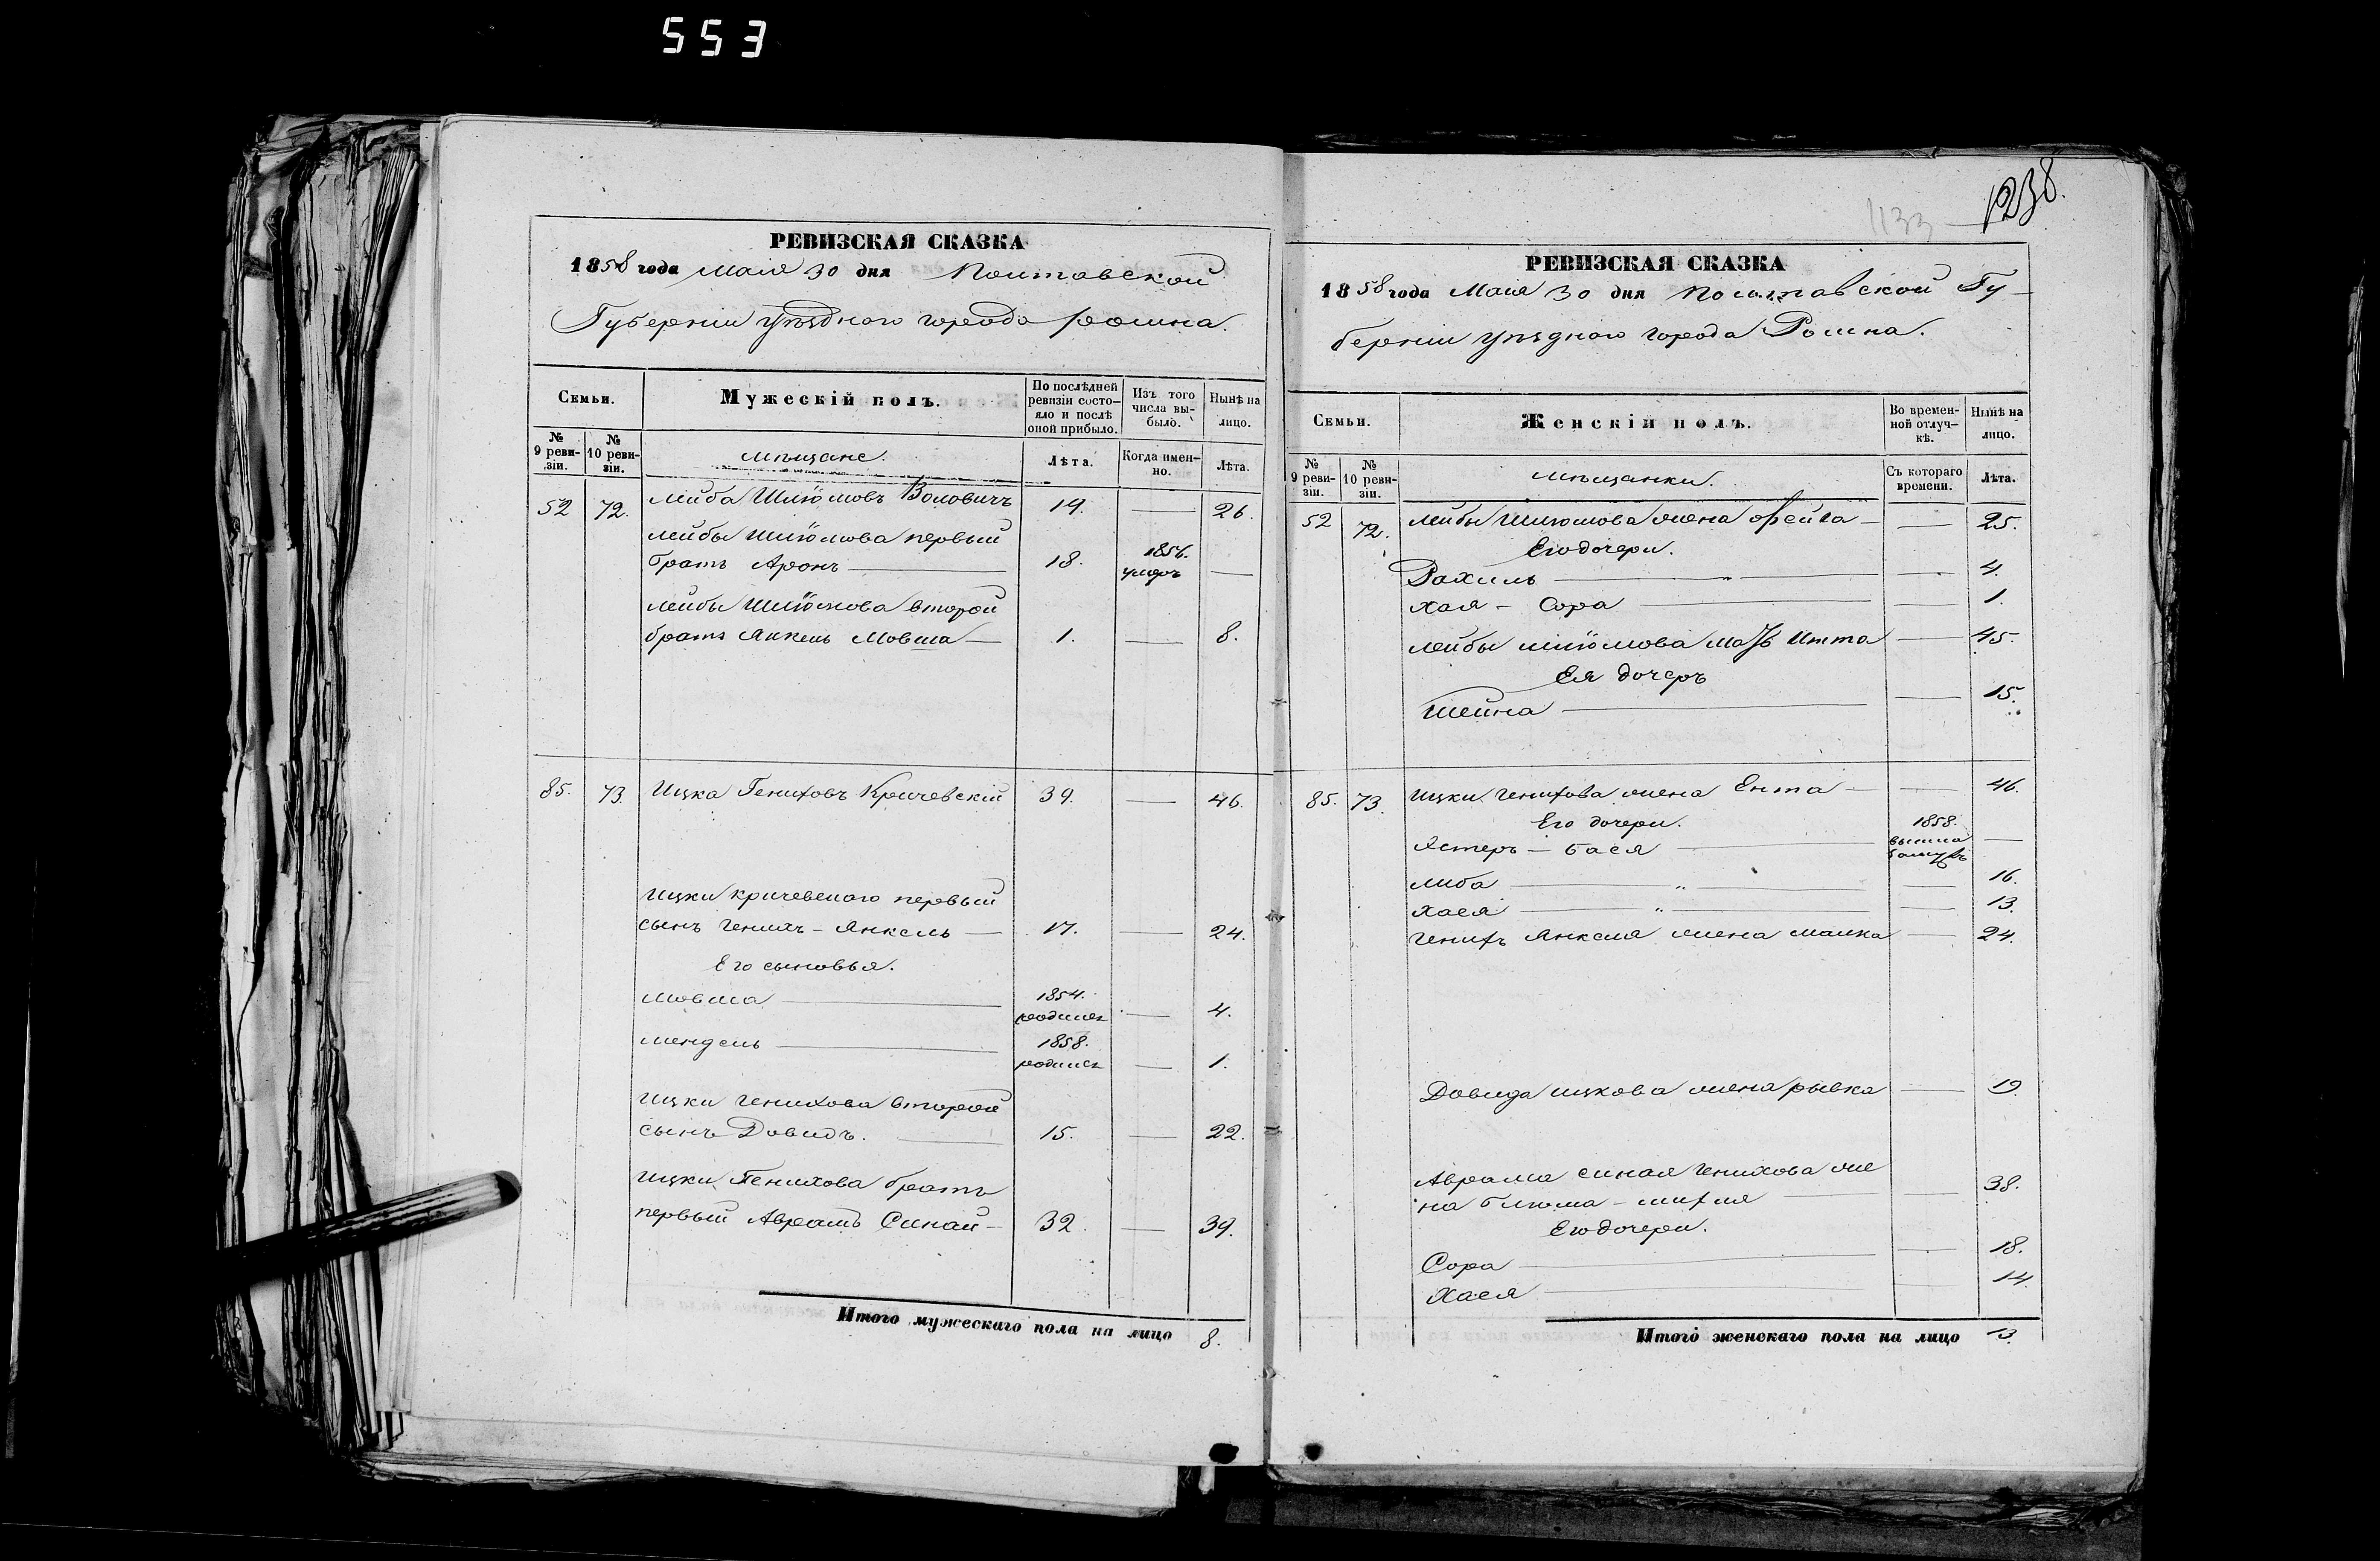 553
РЕВИЗСКАЯ СКАЗКА
1858 года Маія 30 дня Полтавской
Губерніи уѣзднаго города Ромна.
Семьи.
Мужескій полъ.
По послѣдней ревизіи состояло и послѣ оной прибыло.
Изъ того числа выбыло.
Нынѣ на лицо.
№ 9 ревизіи.
№ 10 ревизіи.
мѣщане.
Лѣта.
Когда именно.
Лѣта.
52 72. Лейба Шліомовъ Воловичъ 19. — 26.
Лейбы Шліомова первый
братъ Аронъ — 18. 1856. умеръ —
Лейбы Шліомова второй
братъ Янкель Мовша — 1. — 8.
85. 73. Ицка Гениховъ Кричевскій 39. — 46.
Ицки Кричевскаго первый
сынъ Генихъ - Янкель — 17. — 24.
Его сыновья.
Мовша — 1854. родился — 4.
Мендель — 1858. родился — 1.
Ицки Генихова второй
сынъ Довидъ. — 15. — 22.
Ицки Генихова братъ
первый Аврамъ Синай — 32. — 39.
Итого мужескаго пола на лицо 8.
1133 — 1238.
РЕВИЗСКАЯ СКАЗКА
1858 года Маія 30 дня Полтавской Гу-
берніи уѣзднаго города Ромна.
Семьи.
Женскій полъ.
Во временной отлучкѣ.
Нынѣ на лицо.
№ 9 ревизіи.
№ 10 ревизіи.
мѣщанки.
Съ котораго времени.
Лѣта.
52 72. Лейбы Шліомова жена Фейга — — 25.
Его дочери.
Рахиль — „ — — 4.
Хая - Сора — — 1.
Лейбы Шліомова мать Итта — 45.
Ея дочерь
Шейна — — 15.
85. 73. Ицки Генихова жена Ента — — 46.
Его дочери.
Эстеръ - Бася — 1858. вышла замужъ —
Либа — „ — — 16.
Хася — „ — — 13.
Генихъ Янкеля жена Малка — 24.
Довида Ицкова жена Рывка — 19.
Аврама Синая Генихова же
на Блюма - Михля — — 38.
Его дочери.
Сора — — 18.
Хася — — 14.
Итого женскаго пола на лицо 13.